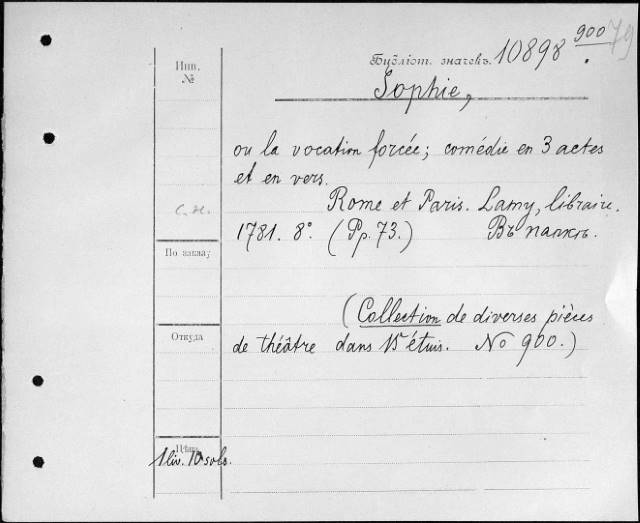 900
79
Инв.
№
Библіот. значекъ. 10898
Sophie,
ou la vocation forcée; comédie en 3 actes
et en vers.
Rome et Paris. Lamy, libraire.
1781. 8°. (Pp. 73.) Въ папкѣ.
По заказу
(Collection de diverses pièces
Откуда
de théâtre dans 15 étuis. No 900.)
Цѣна
1 liv. 10 sols.